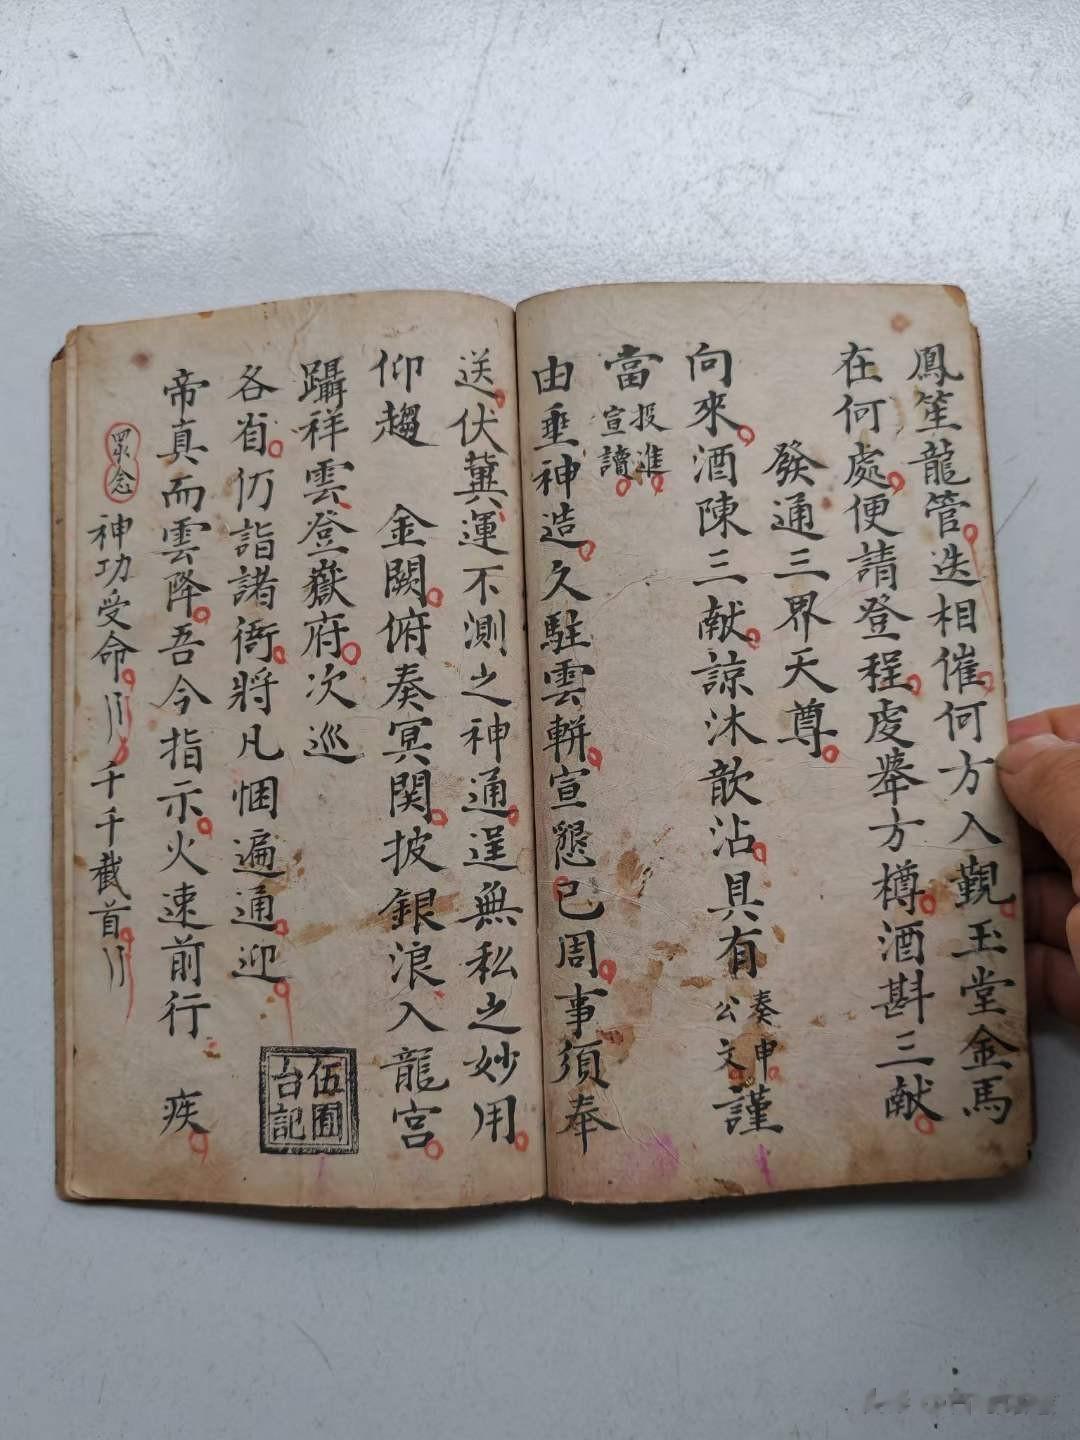 鳳笙龍管迭相催何方入覲玉堂金馬
在何處便請登程虔舉方樽酒斟三献
發通三界天尊
向來酒陳三献諒沐歆沾具有奏申公文謹
當投進宣讀
由垂神造久駐雲軿宣懇已周事須奉
送伏冀運不測之神通逞無私之妙用
仰趨 金闕俯奏冥関披銀浪入龍宮
躡祥雲登嶽府次巡
各省仍詣諸衙將凡悃遍通迎
帝真而雲降吾今指示火速前行 疾
眾念 神功受命 千千截首
伍囿
台記